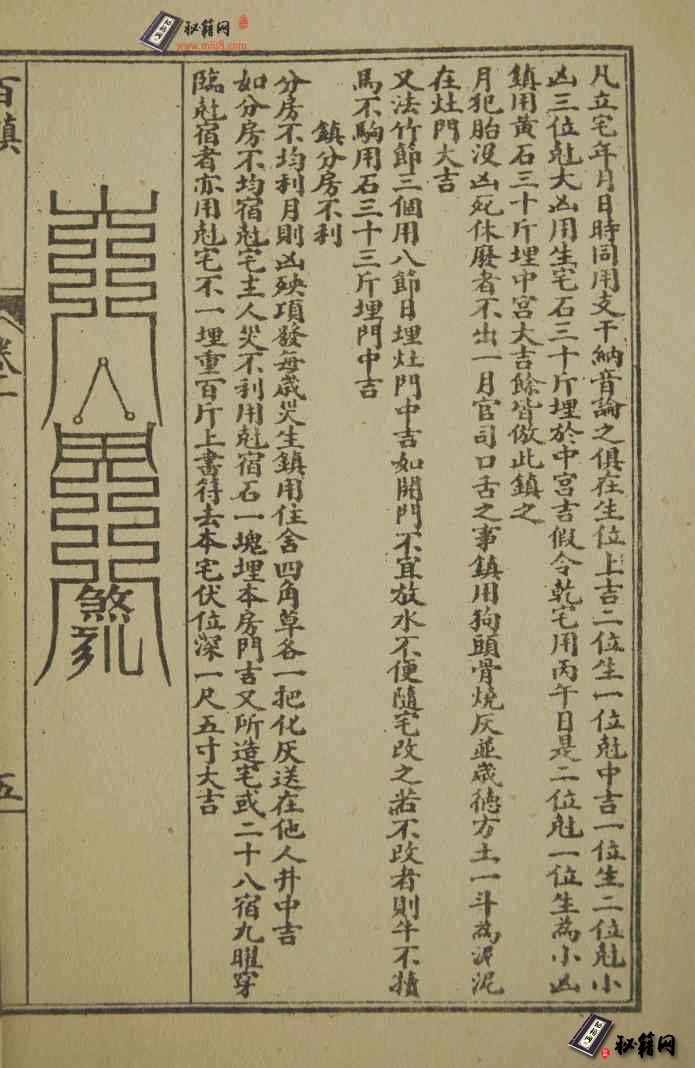 秘籍网
www.miji8.com
凡立宅年月日時同用支干納音論之俱在生位上吉二位生一位尅中吉一位生二位尅小
凶三位尅大凶用生宅石三十斤埋於中宮吉假令乾宅用丙午日是二位尅一位生為小凶
鎮用黃石三十斤埋中宮大吉餘皆倣此鎮之
月犯胎没凶死休廢者不出一月官司口舌之事鎮用狗頭骨燒灰並歲德方土一斗為泥泥
在灶門大吉
又法竹節三個用八節日埋灶門中吉如開門不宜放水不便隨宅改之若不改者則牛不犢
馬不駒用石三十三斤埋門中吉
鎮分房不利
分房不均利月則凶殃項發每歲災生鎮用住舍四角草各一把化灰送在他人井中吉
如分房不均宿尅宅主人災不利用尅宿石一塊埋本房門吉又所造宅或二十八宿九曜穿
臨尅宿者亦用尅宅不一埋重百斤上書符去本宅伏位深一尺五寸大吉
煞
百鎮
卷二
五
秘籍网